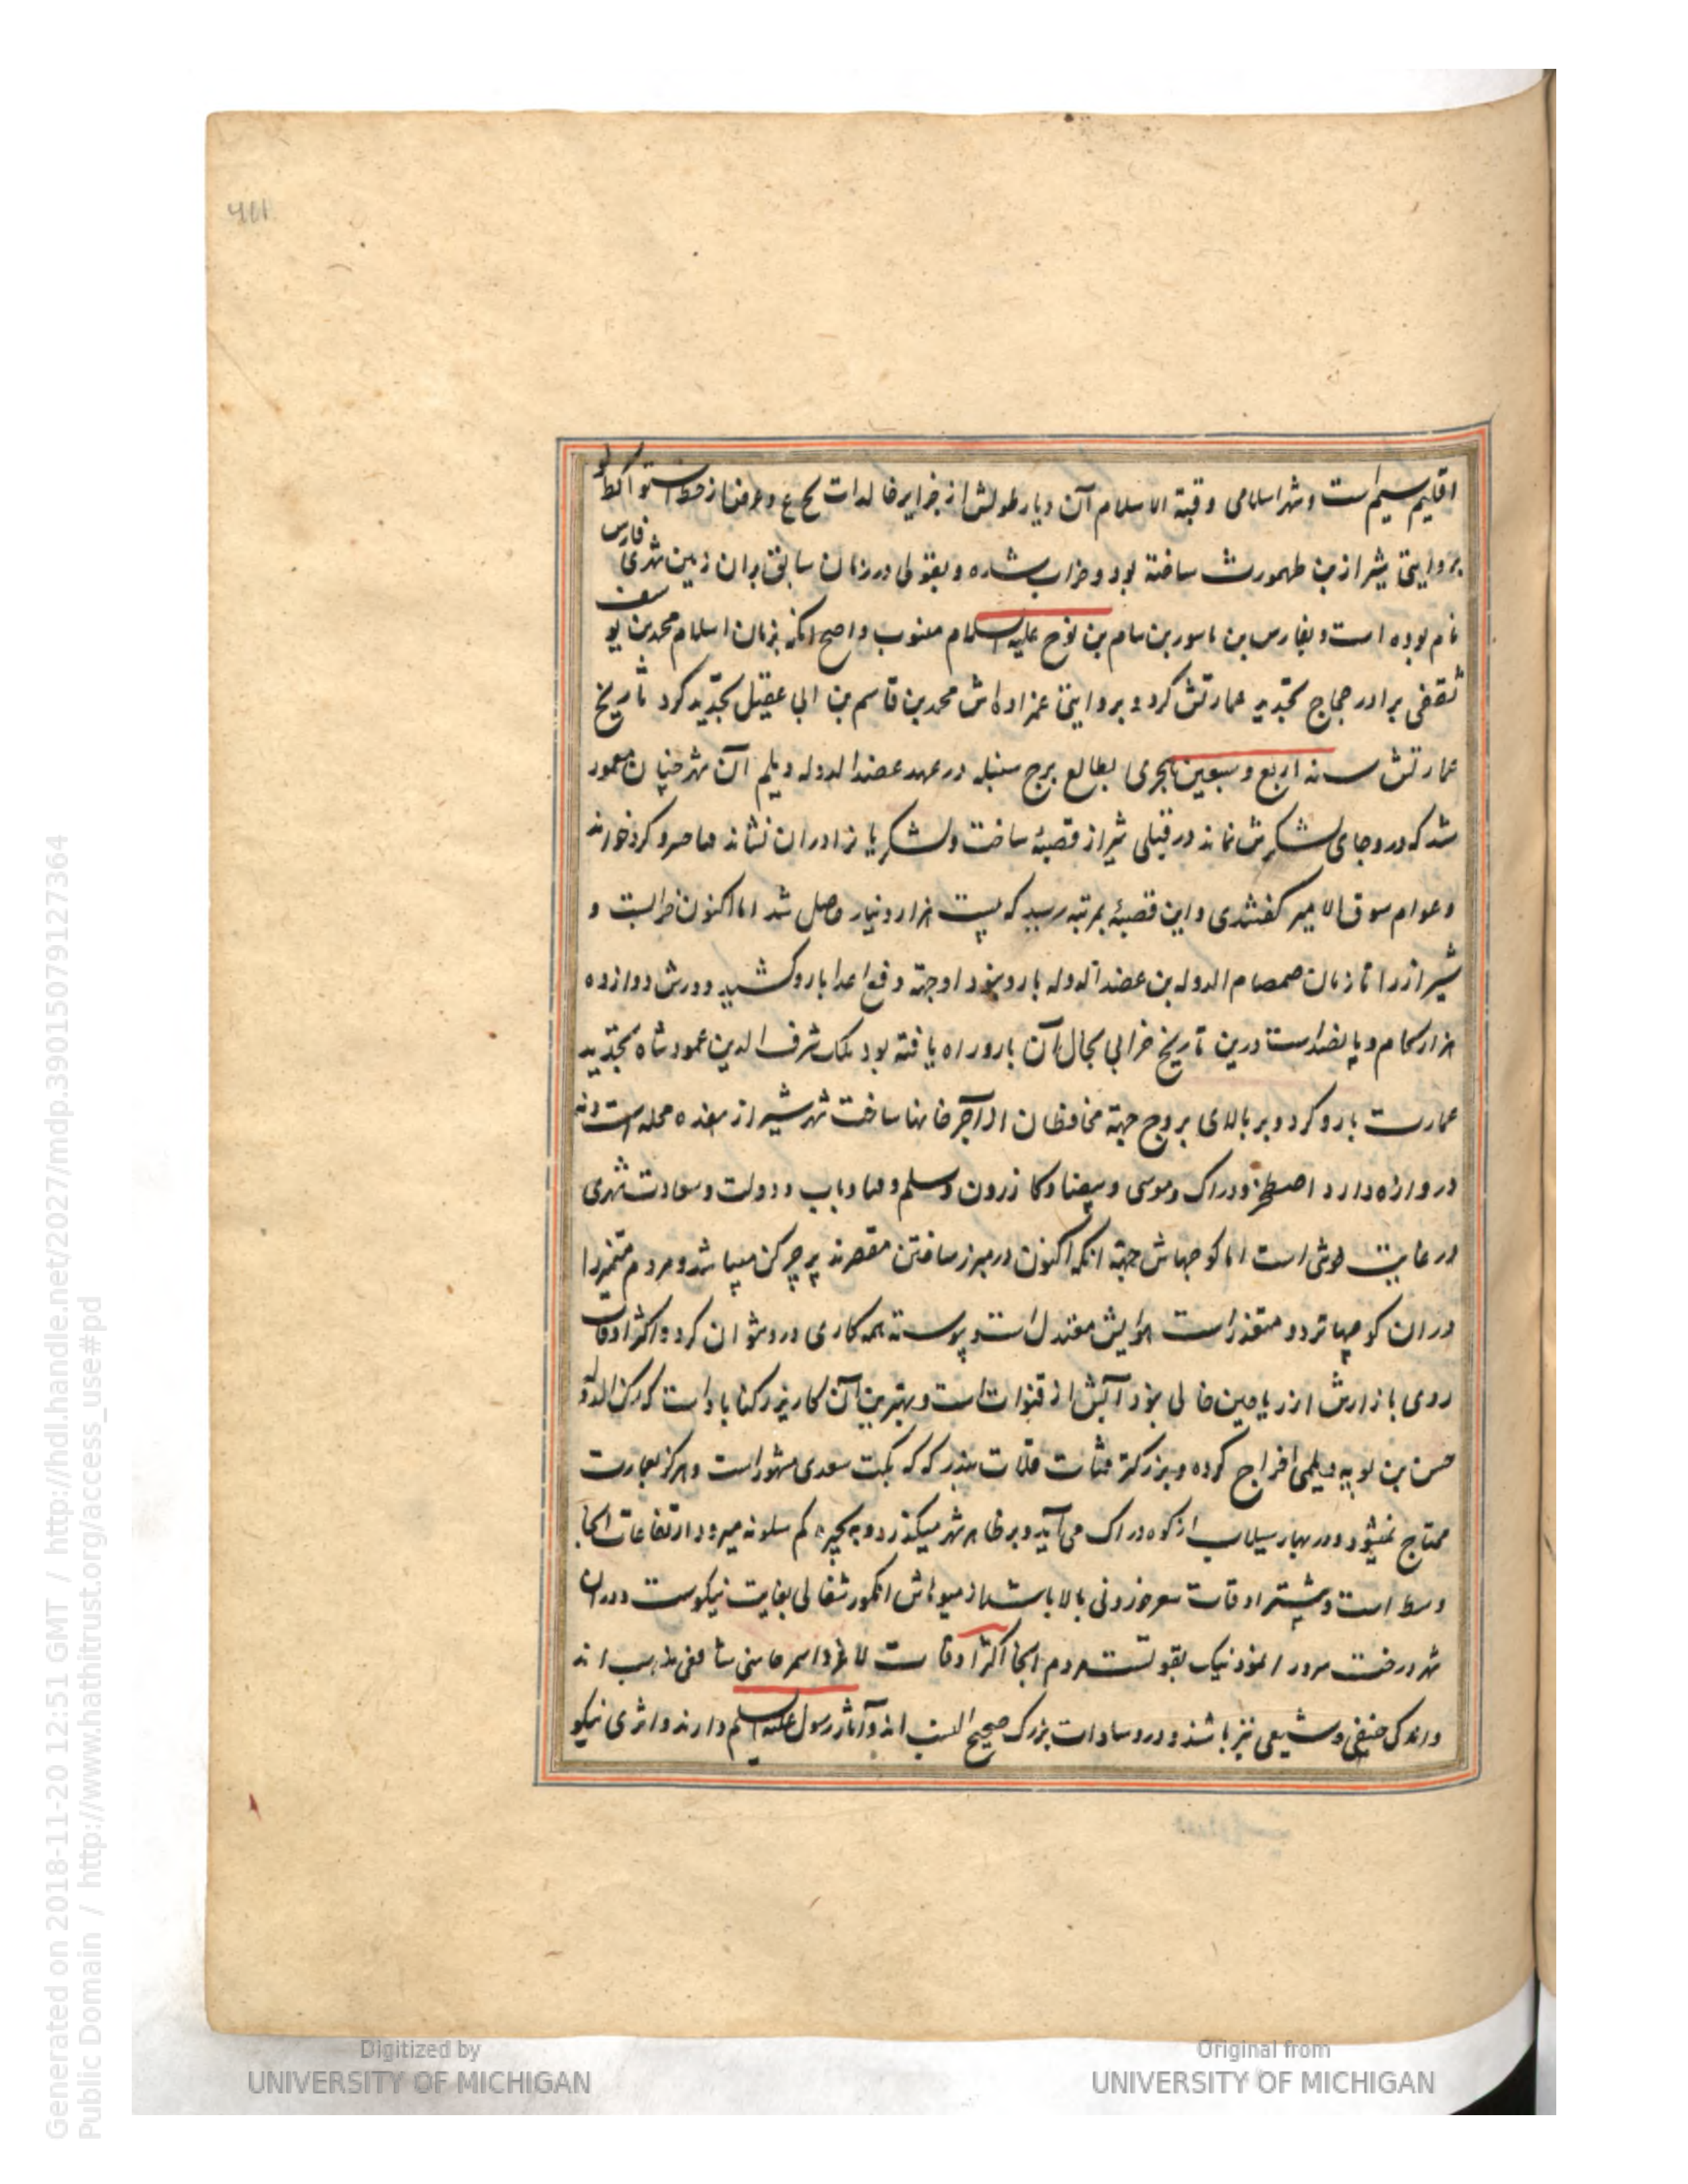 اقلیم سیم است و شهر اسلامی و قبة الاسلام آن دیار طولش از جزایر خالدات فح ع و عرض از خط استوا کط لو
بروایتی شیراز بن طهمورث ساخته بود و خراب شده و بقولی در زمان سابق بران زمین شهری فارس
نام بوده است و بفارس بن ماسور بن سام بن نوح علیه السلام منسوب و اصح انکه بزمان اسلام محمد بن یوسف
ثقفی برادر حجاج تجدید عمارتش کرد و بروایتی عمزاده اش محمد بن قاسم بن ابی عقیل تجدید کرد تاریخ
عمارتش سنه اربع و سبعین هجری بطالع برج سنبله در عهد عضد الدوله دیلم آن شهر چنان معمور
شد که درو جای لشکرش نماند در قبلی شیراز قصبهٔ ساخت و لشکریانرا دران نشاند فنا خسرو کرد خورند
و عوام سوق الامیر گفتندی و این قصبهٔ بمرتبه رسید که بیست هزار دینار حاصل شد اما اکنون خرابست و
شیراز را تا زمان صمصام الدوله بن عضد الدوله بارو نبود او جهة دفع اعدا بارو کشید دورش دوازده
هزار کام و پانصد است درین تاریخ خرابی بحال آن بارو راه یافته بود ملک شرف الدین محمود شاه تجدید
عمارت بارو کرد و بر بالای بروج جهة محافظان از آجر خانها ساخت شهر شیراز هفده محله است و نه
دروازه دارد اصطخر و دراک و موسی و بیضا و کازرون و سلم و فنا و باب و دولت و سعادت شهری
در غایت خوشی است اما کوچهاش جهة انکه اکنون در مبرز ساختن مقصرند پر چرکن میباشد و مردم متمیز را
دران کوچها تردد متعذر است هوایش معتدل است و پیوسته همه کاری درو توان کرد و اکثر اوقات
روی بازارش از ریاحین خالی نبود آبش از قنوات است و بهترین آن کاریز رکناباد است که رکن الدوله
حسن بن بویه دیلمی اخراج کرده و بزرکتر قنات قلات بندر که که بکت سعدی مشهور است و هرکز بعمارت
محتاج نمیشود و در بهار سیلاب از کوه دراک می آید و بر ظاهر شهر میگذرد و به بحیره کم سلونه میرود ارتفاعات انجا
وسط است و بیشتر اوقات سعر خوردنی بالا باشد از میوهاش انگور مثقالی بغایت نیکوست و دران
شهر درخت سرو را نموذ نیک بقوتست مردم انجا اکثر اوقات لاغر و اسمر و سنی شافعی مذهب اند
و اندک حنفی و شیعی نیز باشند و درو سادات بزرک صحیح النسب اند و آثار رسول علیه السلم دارند و اثری نیکو